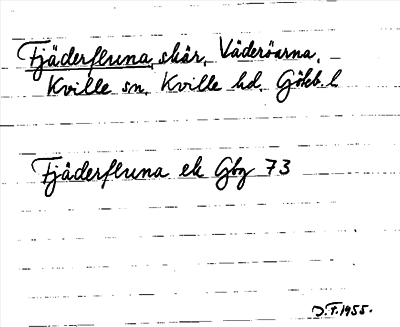 Fjäderfluna, skär, Väderöarna,
Kville sn, Kville hd. Göteb. l.
Fjäderfluna ek Gbg 73
D.F. 1955.